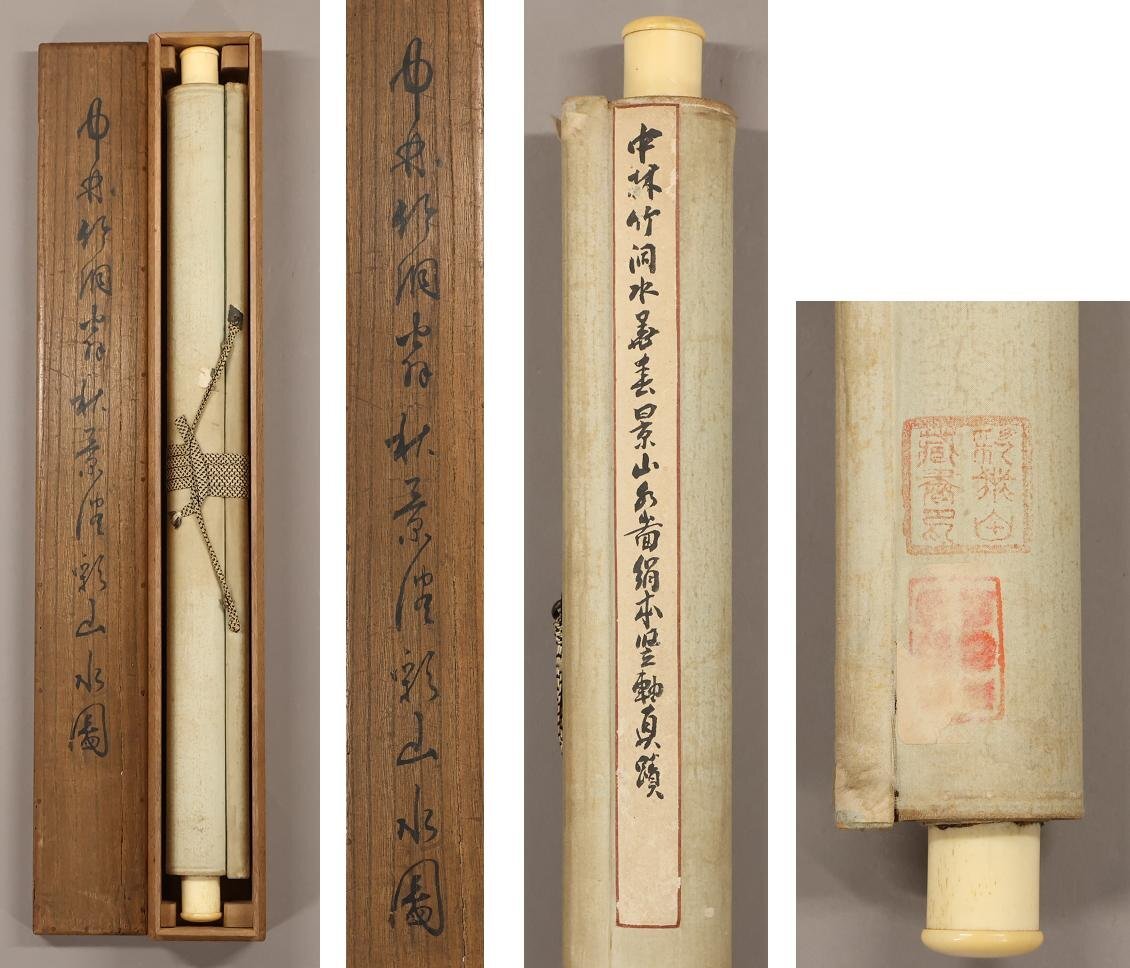 中林竹洞翁秋景彩山水圖
中林竹洞翁秋景彩山水圖
中林竹洞水墨春景山水啚絹本竪軸真蹟
藏書印